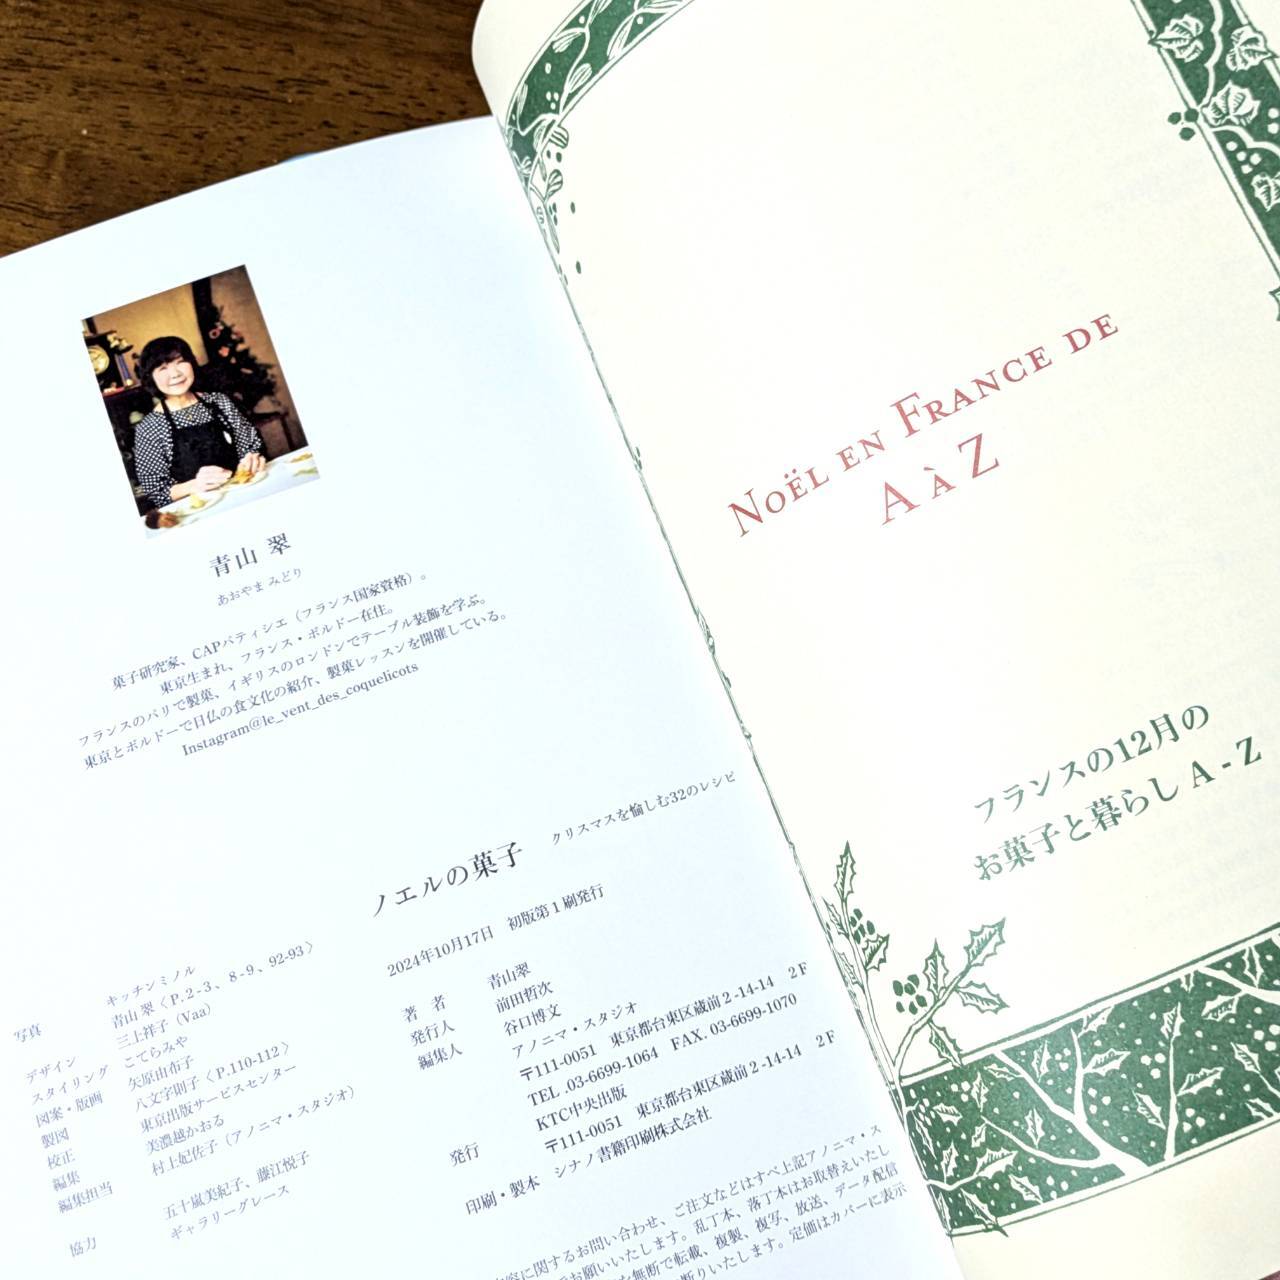 青山 翠
あおやま みどり
菓子研究家、CAPパティシエ（フランス国家資格）。
東京生まれ、フランス・ボルドー在住。
フランスのパリで製菓、イギリスのロンドンでテーブル装飾を学ぶ。
東京とボルドーで日仏の食文化の紹介、製菓レッスンを開催している。
Instagram@le_vent_des_coquelicots
ノエルの菓子　クリスマスを愉しむ32のレシピ
2024年10月17日　初版第1刷発行
著 者　青山翠
発行人　前田哲次
編集人　谷口博文
アノニマ・スタジオ
〒111-0051　東京都台東区蔵前2-14-14　2F
TEL.03-6699-1064　FAX. 03-6699-1070
発行　KTC中央出版
〒111-0051　東京都台東区蔵前2-14-14　2F
印刷・製本　シナノ書籍印刷株式会社
写真　キッチンミノル
青山 翠〈P.2-3、8-9、92-93〉
デザイン　三上祥子（Vaa）
スタイリング　こてらみや
図案・版画　矢原由布子
製図　八文字則子〈P.110-112〉
校正　東京出版サービスセンター
編集　美濃越かおる
編集担当　村上妃佐子（アノニマ・スタジオ）
協力　五十嵐美紀子、藤江悦子
ギャラリーグレース
に関するお問い合わせ、ご注文などはすべ上記アノニマ・ス
お願いいたします。乱丁本、落丁本はお取替えいたし
無断で転載、複製、複写、放送、データ配信
断りいたします。定価はカバーに表示
Noël en France de
A à Z
フランスの12月の
お菓子と暮らし A - Z